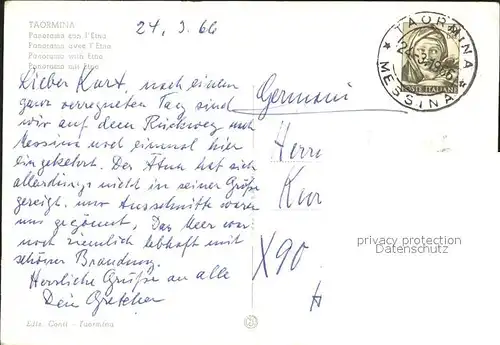 TAORMINA
Panorama con l'Etna
Panorama avec l'Etna
Panorama with Etna
Panorama mit Etna
24. 3. 66
TAORMINA
24.3.1966
MESSINA
POSTE ITALIANE
Lieber Kurt, nach einem
ganz verregneten Tag sind
wir auf dem Rückweg nach
Messina noch einmal hier
eingekehrt. Der Ätna hat sich
allerdings nicht in seiner Größe
gezeigt, nur Ausschnitte waren
uns gegönnt. Das Meer war
noch ziemlich lebhaft mit
schöner Brandung.
Herrliche Grüße an alle
Dein Gretchen
Germani
Herrn
Kur
X90
privacy protection
Datenschutz
Ediz. Conti - Taormina